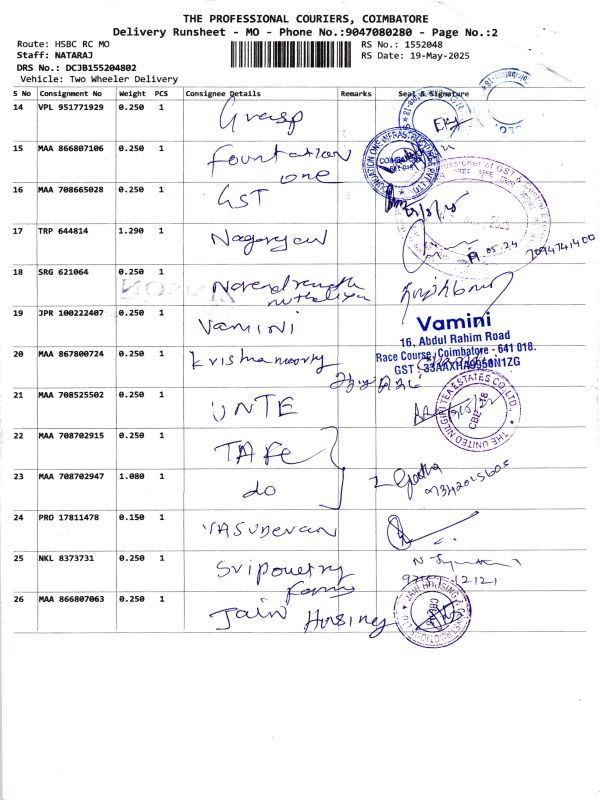 THE PROFESSIONAL COURIERS, COIMBATORE
Delivery Runsheet - MO - Phone No.:9047080280 - Page No.:2
Route: HSBC RC MO
RS No.: 1552048
Staff: NATARAJ
RS Date: 19-May-2025
DRS No.: DCJB155204802
Vehicle: Two Wheeler Delivery
S No Consignment No Weight PCS Consignee Details Remarks Seal & Signature
14 VPL 951771929 0.250 1 Grasp
15 MAA 866807106 0.250 1 Fountation
one
16 MAA 708665028 0.250 1 GST
17 TRP 644814 1.290 1
7094741400
18 SRG 621064 0.250 1
19 JPR 100222407 0.250 1 Vamini
Vamini
16, Abdul Rahim Road
Race Course, Coimbatore - 641 018.
GST : 33AAXHA9950N1ZG
20 MAA 867800724 0.250 1 Krishnamoorty
21 MAA 708525502 0.250 1 UNTE
THE UNITED NILGIRI TEA ESTATES CO LTD.,
CBE - 18
22 MAA 708702915 0.250 1 TAFE
23 MAA 708702947 1.080 1 do
24 PRO 17811478 0.150 1 VASUDEVAN
25 NKL 8373731 0.250 1 Sri Pouetry
Farms
26 MAA 866807063 0.250 1 Jain Housing